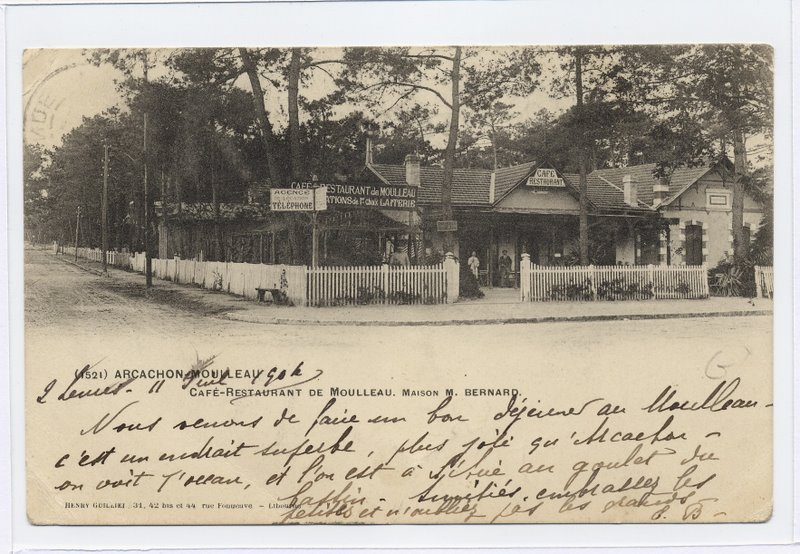 CAFÉ RESTAURANT du MOULLEAU
CAFÉ
RESTAURANT
AGENCE
TÉLÉPHONE
(1521) ARCACHON-MOULLEAU
2 heures - 11 Juil 1904
CAFÉ-RESTAURANT DE MOULLEAU. MAISON M. BERNARD.
Nous venons de faire un bon déjeuner au Moulleau -
c'est un endroit superbe, plus joli qu'Arcachon -
on voit l'océan, et l'on est à situé au goulet du
bassin - Amitiés, embrassez les
petites et n'oubliez pas les grands
E. B -
HENRY GUILLIER, 31, 42 bis et 44 rue Fonneuve - Libourne